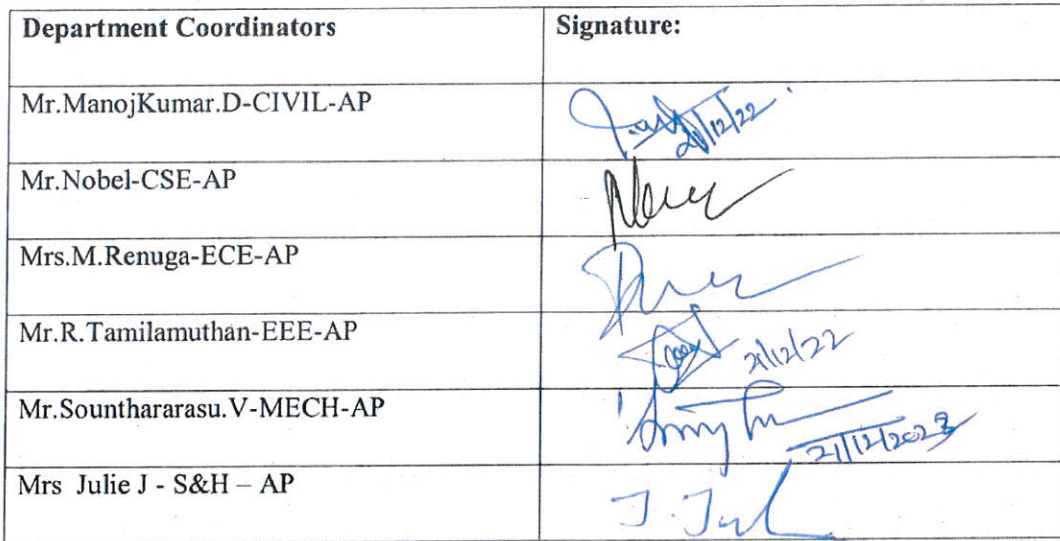 Department Coordinators Signature:
Mr.ManojKumar.D-CIVIL-AP 21/12/22
Mr.Nobel-CSE-AP
Mrs.M.Renuga-ECE-AP
Mr.R.Tamilamuthan-EEE-AP 21/12/22
Mr.Sounthararasu.V-MECH-AP 21/12/2023
Mrs Julie J - S&H – AP